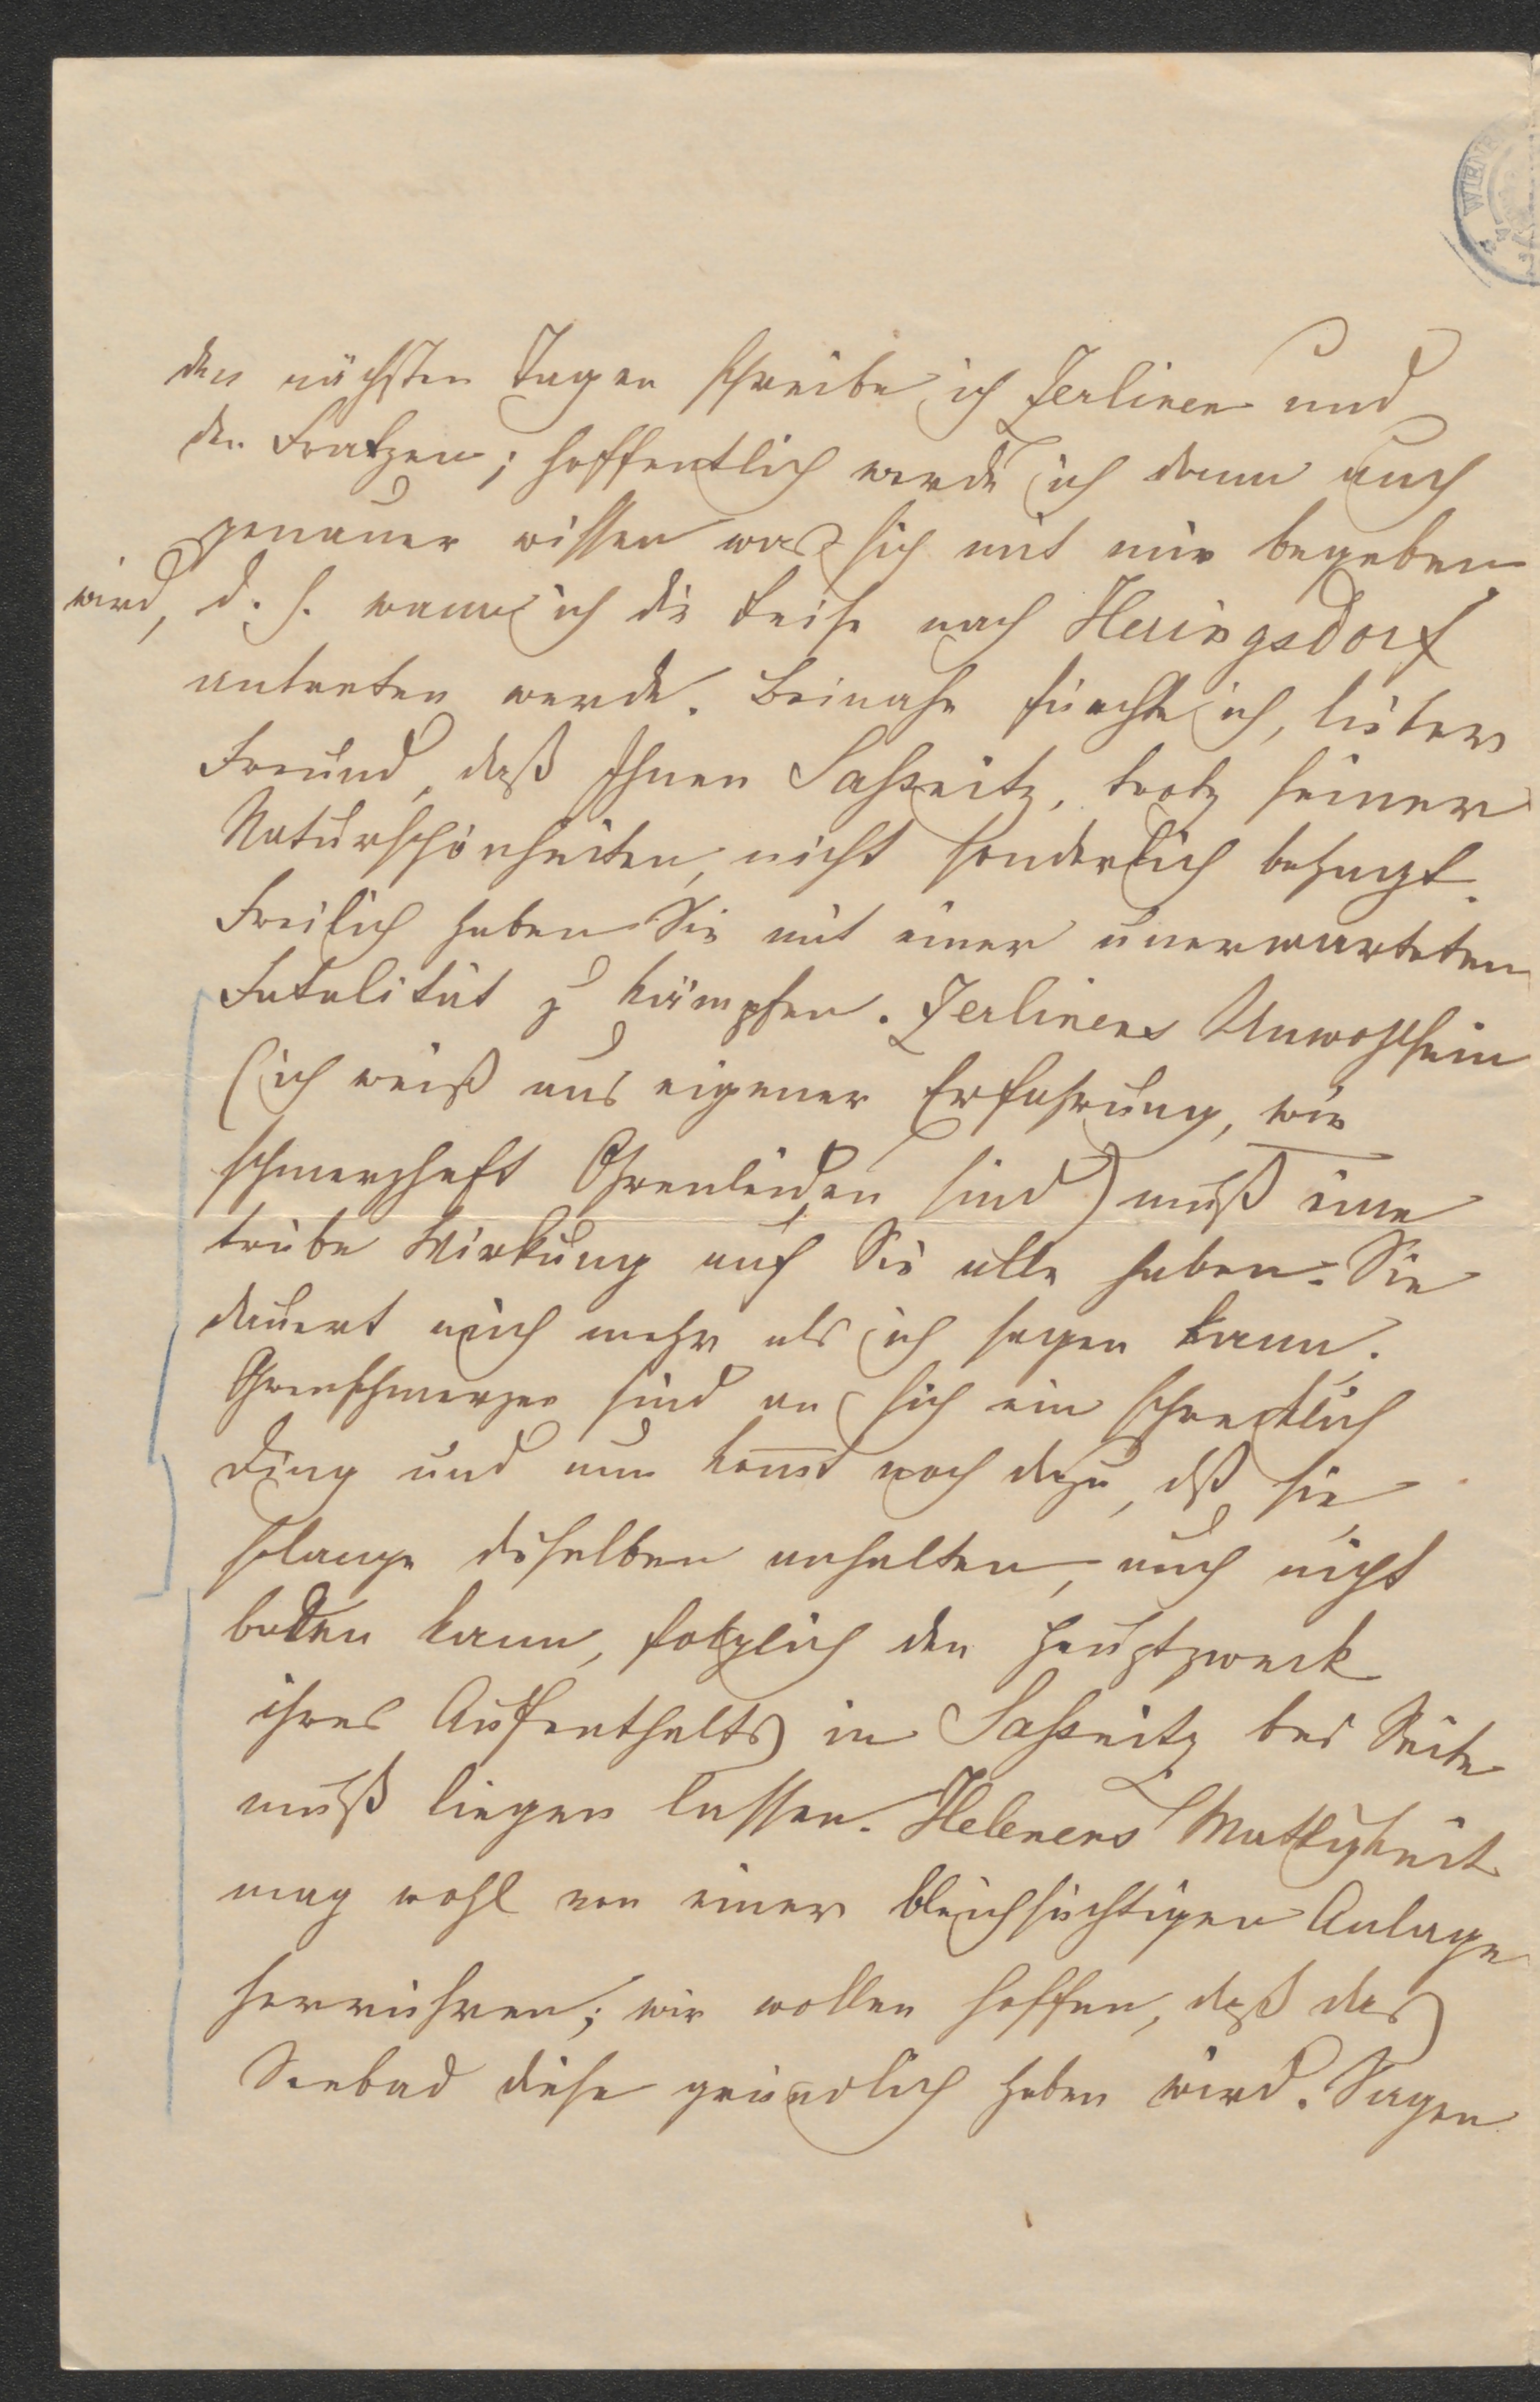 WIENE
den nächsten Tagen schreibe ich Zerlinen und
den Fratzen; hoffentlich werde ich dann auch
genauer wissen was sich mit mir begeben
wird, d. h. wann ich die Reise nach Heringsdorf
antreten werde. Beinahe fürchte ich, lieber
Freund, daß Ihnen Saßnitz, trotz seiner
Naturschönheiten, nicht sonderlich behagt.
Freilich haben Sie mit einer unerwarteten
Fatalität z kämpfen. Zerlinens Unwohlsein
(ich weiß aus eigener Erfahrung, wie
schmerzhaft Ohrenleiden sind) muß eine
trübe Wirkung auf Sie alle haben. Sie
dauert mich mehr als ich sagen kann.
Ohrenschmerzen sind an sich ein schrecklich
Ding und nun komt noch dazu, dß sie,
solange dieselben anhalten, auch nicht
baden kann, folglich den Hauptzweck
ihres Aufenthalts in Saßnitz bei Seite
muß liegen lassen. Helenens Mattigkeit
mag wohl von einer bleichsüchtigen Anlage
herrühren; wir wollen hoffen, daß das
Seebad diese gründlich heben wird. Sagen